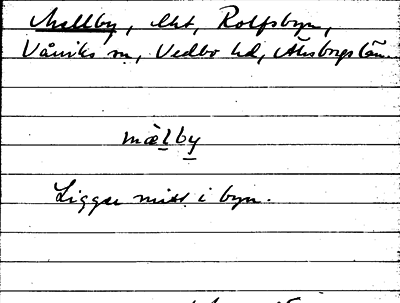 Mellby, Akt, Rolfsbyn,
Vårviks sn, Vedbo hd, Älvsborgs län.
mèlby
Ligger mitt i byn.